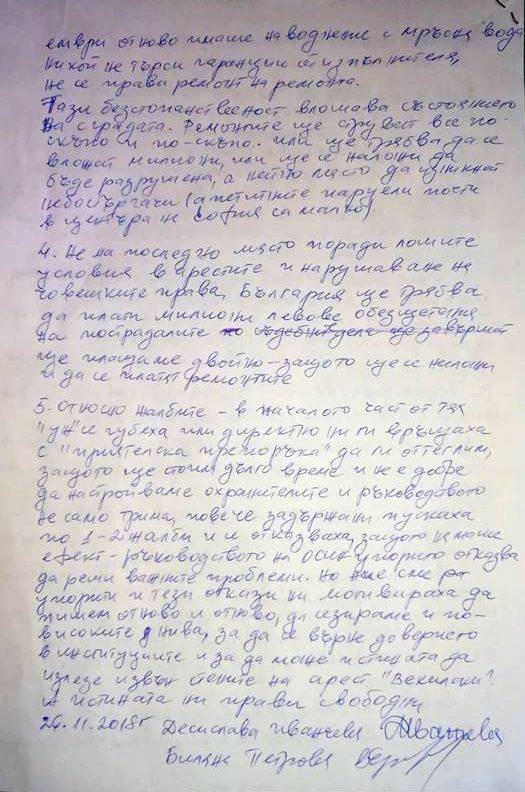 ември отново имаше наводнение с мръсна вода
никой не търси гаранции от изпълнителя,
не се прави ремонт на ремонта.
Тази безстопанственост влошава състоянието
на сградата. Ремонтите ще струват все по-
скъпо и по-скъпо. или ще трябва да се
вложат милиони, или ще се наложи да
бъде разрушена, а нейно място да изникнат
небостъргачи (апетитните парцели почти
в центъра на София са малко).
4. Не на последно място поради лошите
условия в арестите и нарушаване на
човешките права, България ще трябва
да плати милиони левове обезщетения
на пострадалите
ще плащаме двойно - защото ще се наложи
и да се платят ремонтите
5. Относно жалбите - в началото част от тях
"уж" се губеха или директно ни ги връщаха
с "приятелска препоръка" да ги оттеглим,
защото ще стоим дълго време и не е добре
да настройваме охранителите и ръководството
не само трима, повече задържани пускаха
по 1-2 жалби и се отказваха, защото нямаше
ефект - ръководството на ОСИН упорито отказва
да реши важните проблеми. Но ние сме
упорити и тези откази ни мотивираха да
пишем отново и отново, да сезираме и по-
високите нива, за да се върне доверието
в институциите и за да може истината да
излезе извън стените на арест "Векилски".
А истината ни прави свободни
26.11.2018г Десислава Иванчева Иванчева
Биляна Петрова